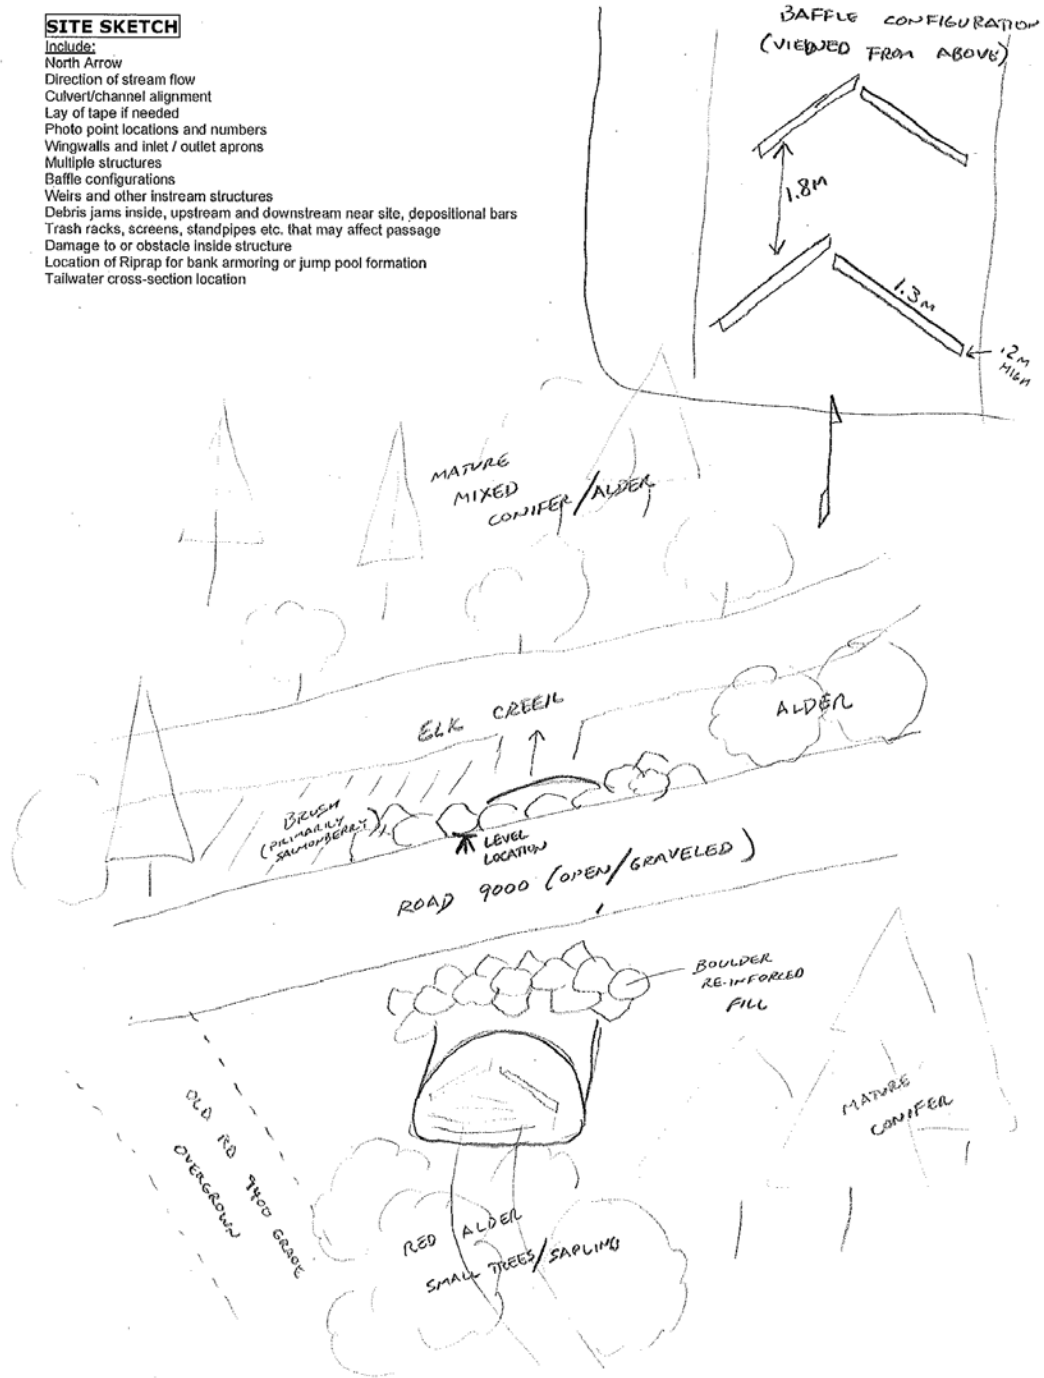 SITE SKETCH
Include:
North Arrow
Direction of stream flow
Culvert/channel alignment
Lay of tape if needed
Photo point locations and numbers
Wingwalls and inlet / outlet aprons
Multiple structures
Baffle configurations
Weirs and other instream structures
Debris jams inside, upstream and downstream near site, depositional bars
Trash racks, screens, standpipes etc. that may affect passage
Damage to or obstacle inside structure
Location of Riprap for bank armoring or jump pool formation
Tailwater cross-section location
BAFFLE CONFIGURATION
(VIEWED FROM ABOVE)
1.8M
1.3M
.2M
HIGH
MATURE
MIXED
CONIFER/ALDER
ELK CREEK
ALDER
BRUSH
(PRIMARILY
SALMONBERRY)
LEVEL
LOCATION
ROAD 9000 (OPEN/GRAVELED)
BOULDER
RE-INFORCED
FILL
MATURE
CONIFER
OLD RD 9400 GRADE
OVERGROWN
RED ALDER
SMALL TREES/SAPLING